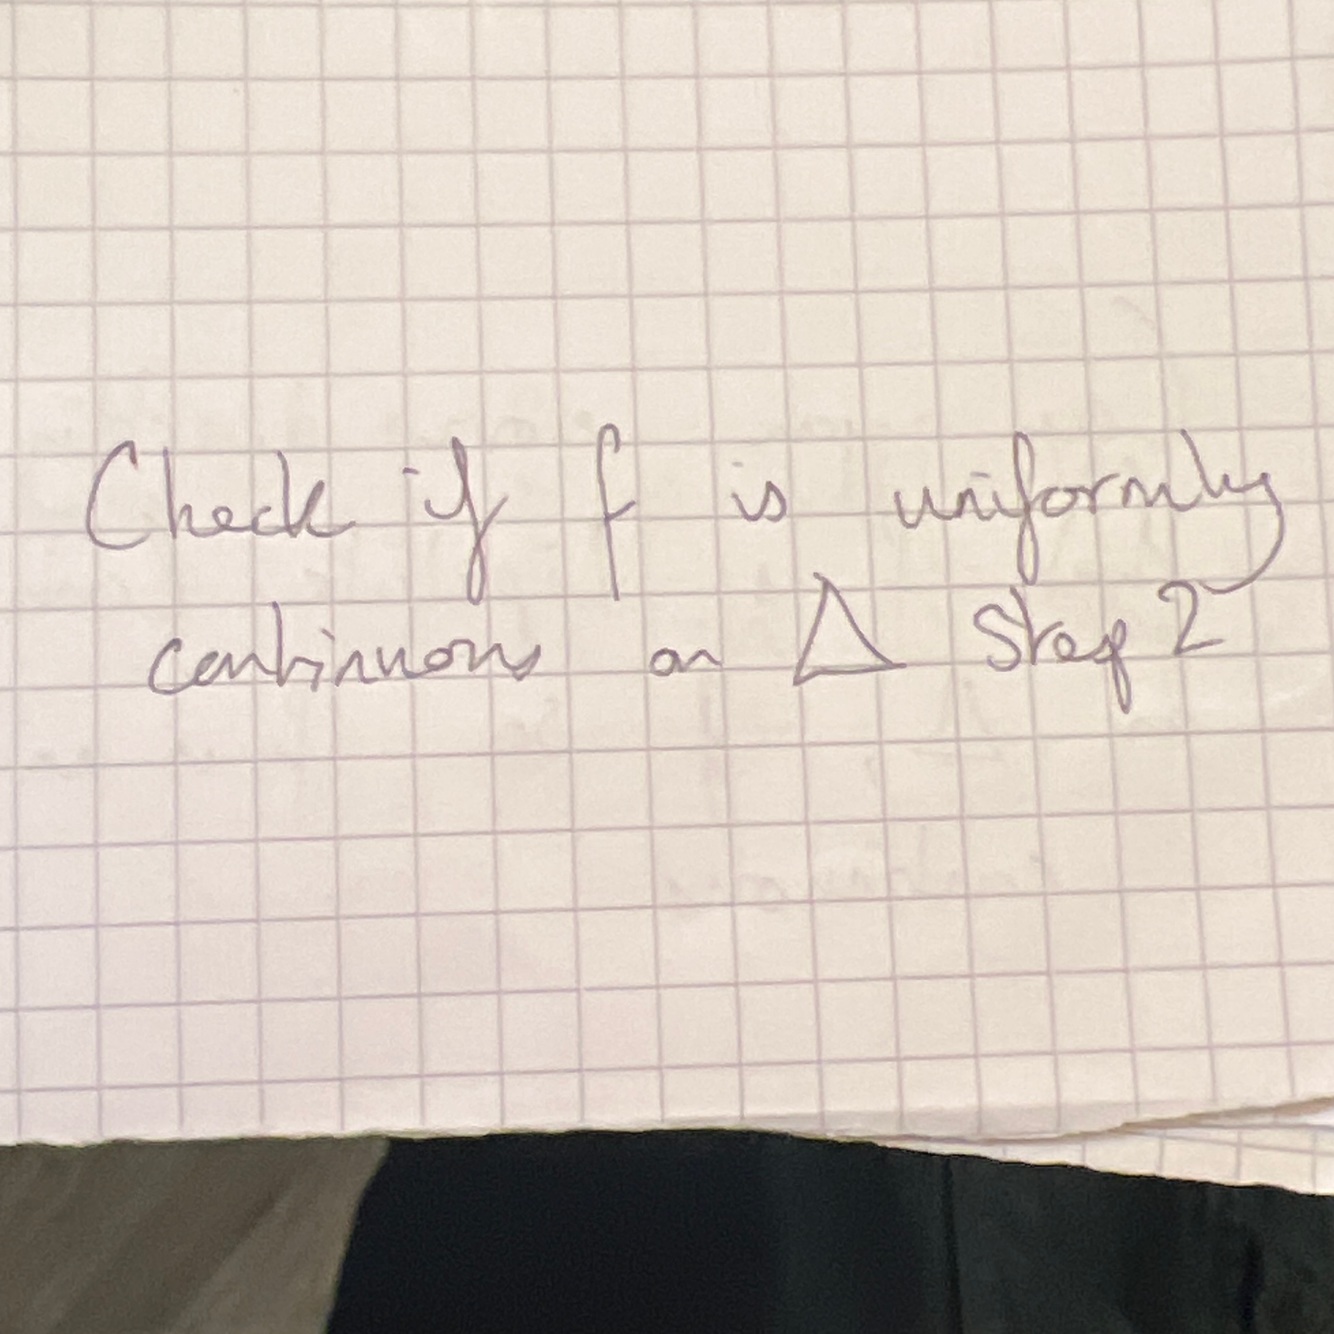 Check if f is uniformly
continuous on Δ Step 2